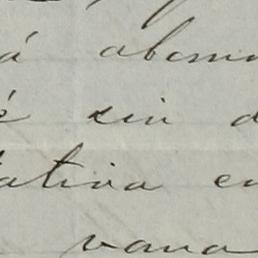 á abona
é sin d
tativa en
vana